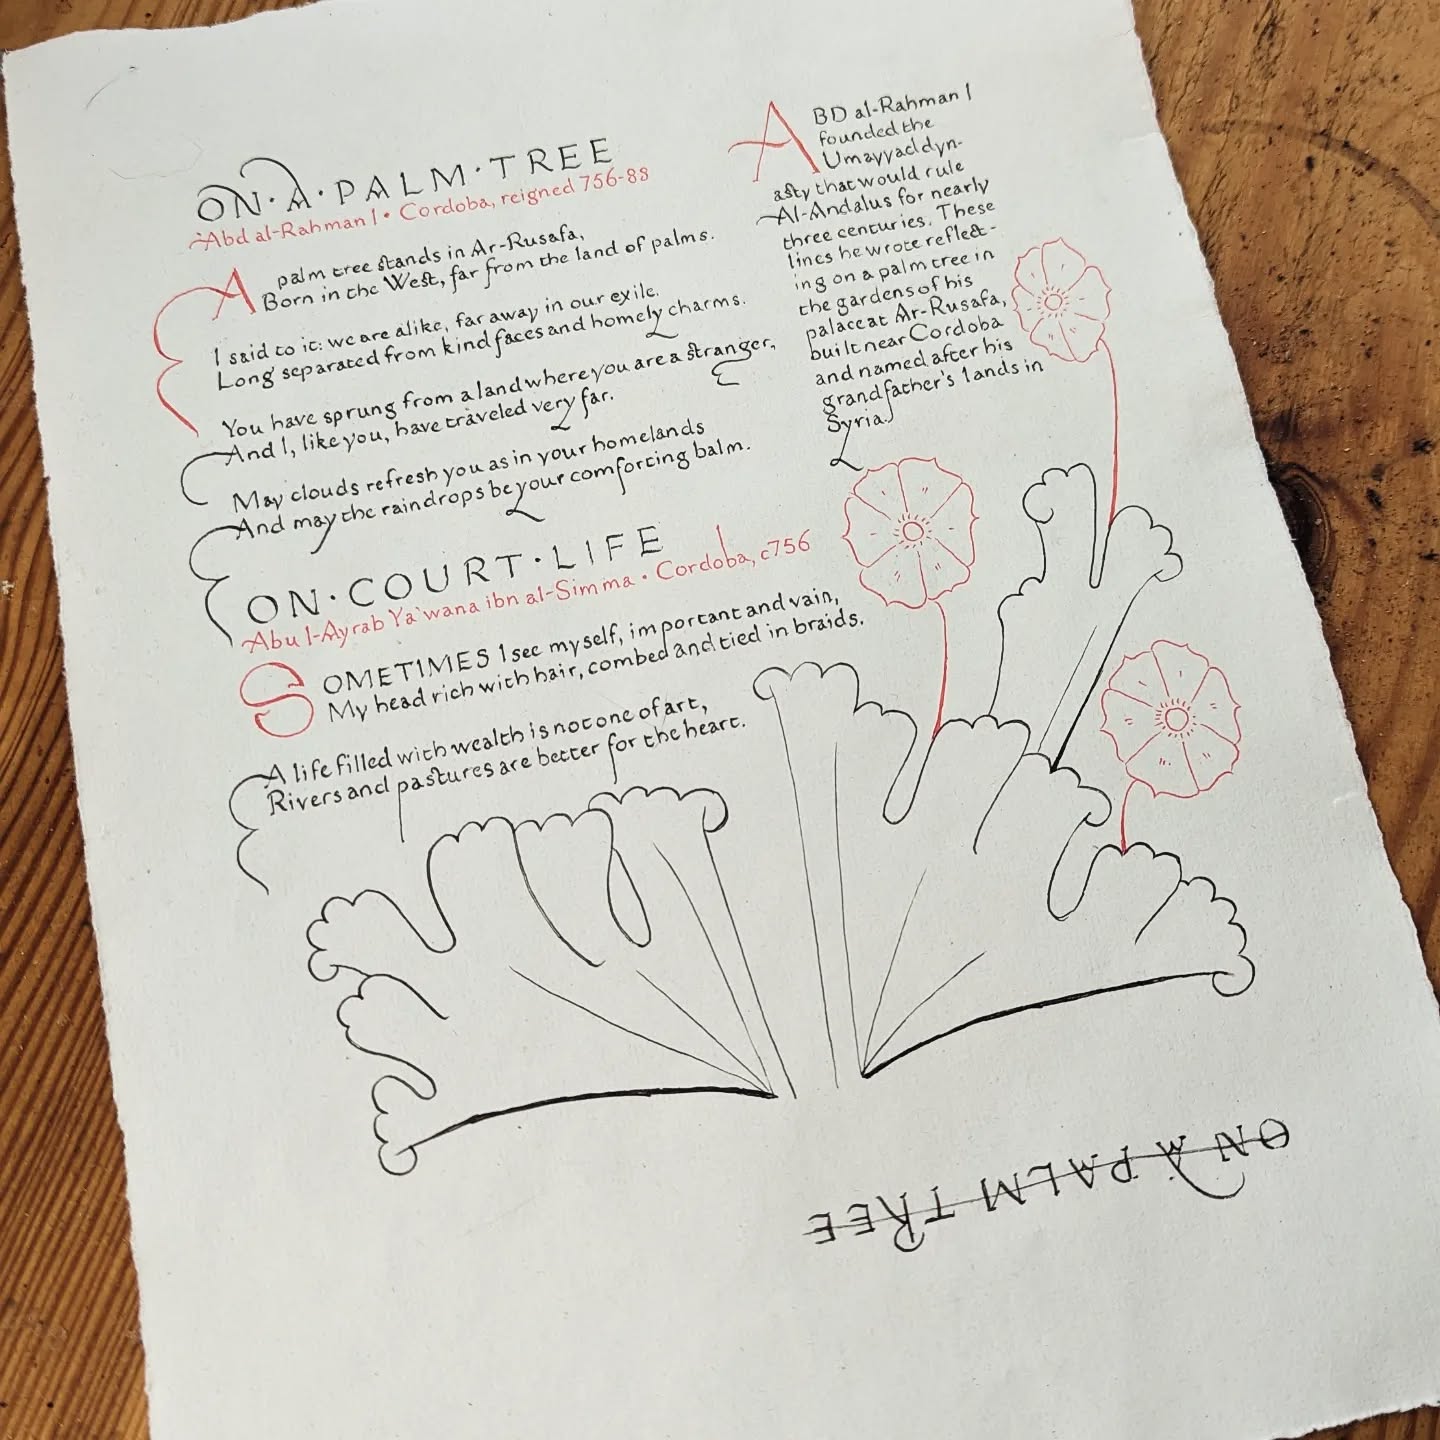 ON·A·PALM·TREE
Abd al-Rahman I • Cordoba, reigned 756-88
A palm tree stands in Ar-Rusafa,
Born in the West, far from the land of palms.
I said to it: we are alike, far away in our exile.
Long separated from kind faces and homely charms.
You have sprung from a land where you are a stranger,
And I, like you, have traveled very far.
May clouds refresh you as in your homelands
And may the raindrops be your comforting balm.
ON·COURT·LIFE
Abu l-Ayrab Ya'wana ibn al-Simma • Cordoba, c756
SOMETIMES I see myself, important and vain,
My head rich with hair, combed and tied in braids.
A life filled with wealth is not one of art,
Rivers and pastures are better for the heart.
ABD al-Rahman I
founded the
Umayyad dyn-
asty that would rule
Al-Andalus for nearly
three centuries. These
lines he wrote reflect-
ing on a palm tree in
the gardens of his
palace at Ar-Rusafa,
built near Cordoba
and named after his
grandfather's lands in
Syria.
ON A PALM TREE